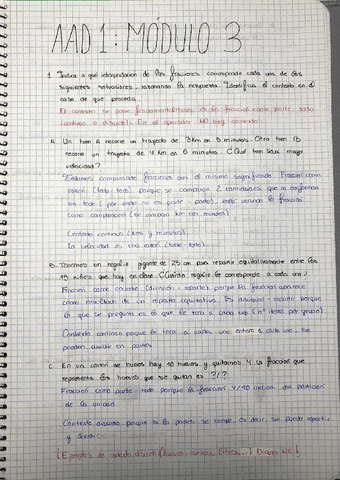 AAD 1: MÓDULO 3
1. Indica a qué interpretación de las fracciones corresponde cada una de las
siguientes situaciones, razonando la respuesta. Identifica el contexto en el
caso de que proceda.
El contexto se pone fundamentalmente en la fracción como parte-todo
(continuo o discreto). En el operador NO hay contexto
A. Un tren A recorre un trayecto de 3 km en 5 minutos. Otro tren B
recorre un trayecto de 4 km en 6 minutos. ¿Qué tren lleva mayor
velocidad?
Estamos comparando fracciones con el mismo significado. Fracción como
razón (todo-todo) porque se comparan 2 cantidades que
un todo (por esto no es parte-parte), está usando la fracción
como comparación (se compara km con minutos)
Contexto continuo (km y minutos).
La velocidad es una razón (todo-todo).
B. Tenemos un regaliz gigante de 25 cm para repartir equitativamente entre los
15 niños que hay en clase. ¿Cuánto regaliz le corresponde a cada uno?
Fracción como cociente (división-reparto) porque la fracción aparece
como resultado de un reparto equitativo. Es división-reparto porque
lo que se pregunta es lo que le toca a cada uno (nº de por grupo)
Contexto continuo, porque lo que toca a cada uno, entero a cada uno, se
pueden dividir en partes.
C. En un cartón de huevos hay 10 huevos y quitamos 4. La fracción que
representa los huevos que se quitan es ?/?
Fracción como parte-todo porque la fracción 4/10 indica una partición
de la unidad
Contexto discreto porque si lo partes se rompe, es decir, se puede repartir
y dividir.
¡Ejemplos de contexto discreto (huevos, canicas, libros...) Dinero NO!